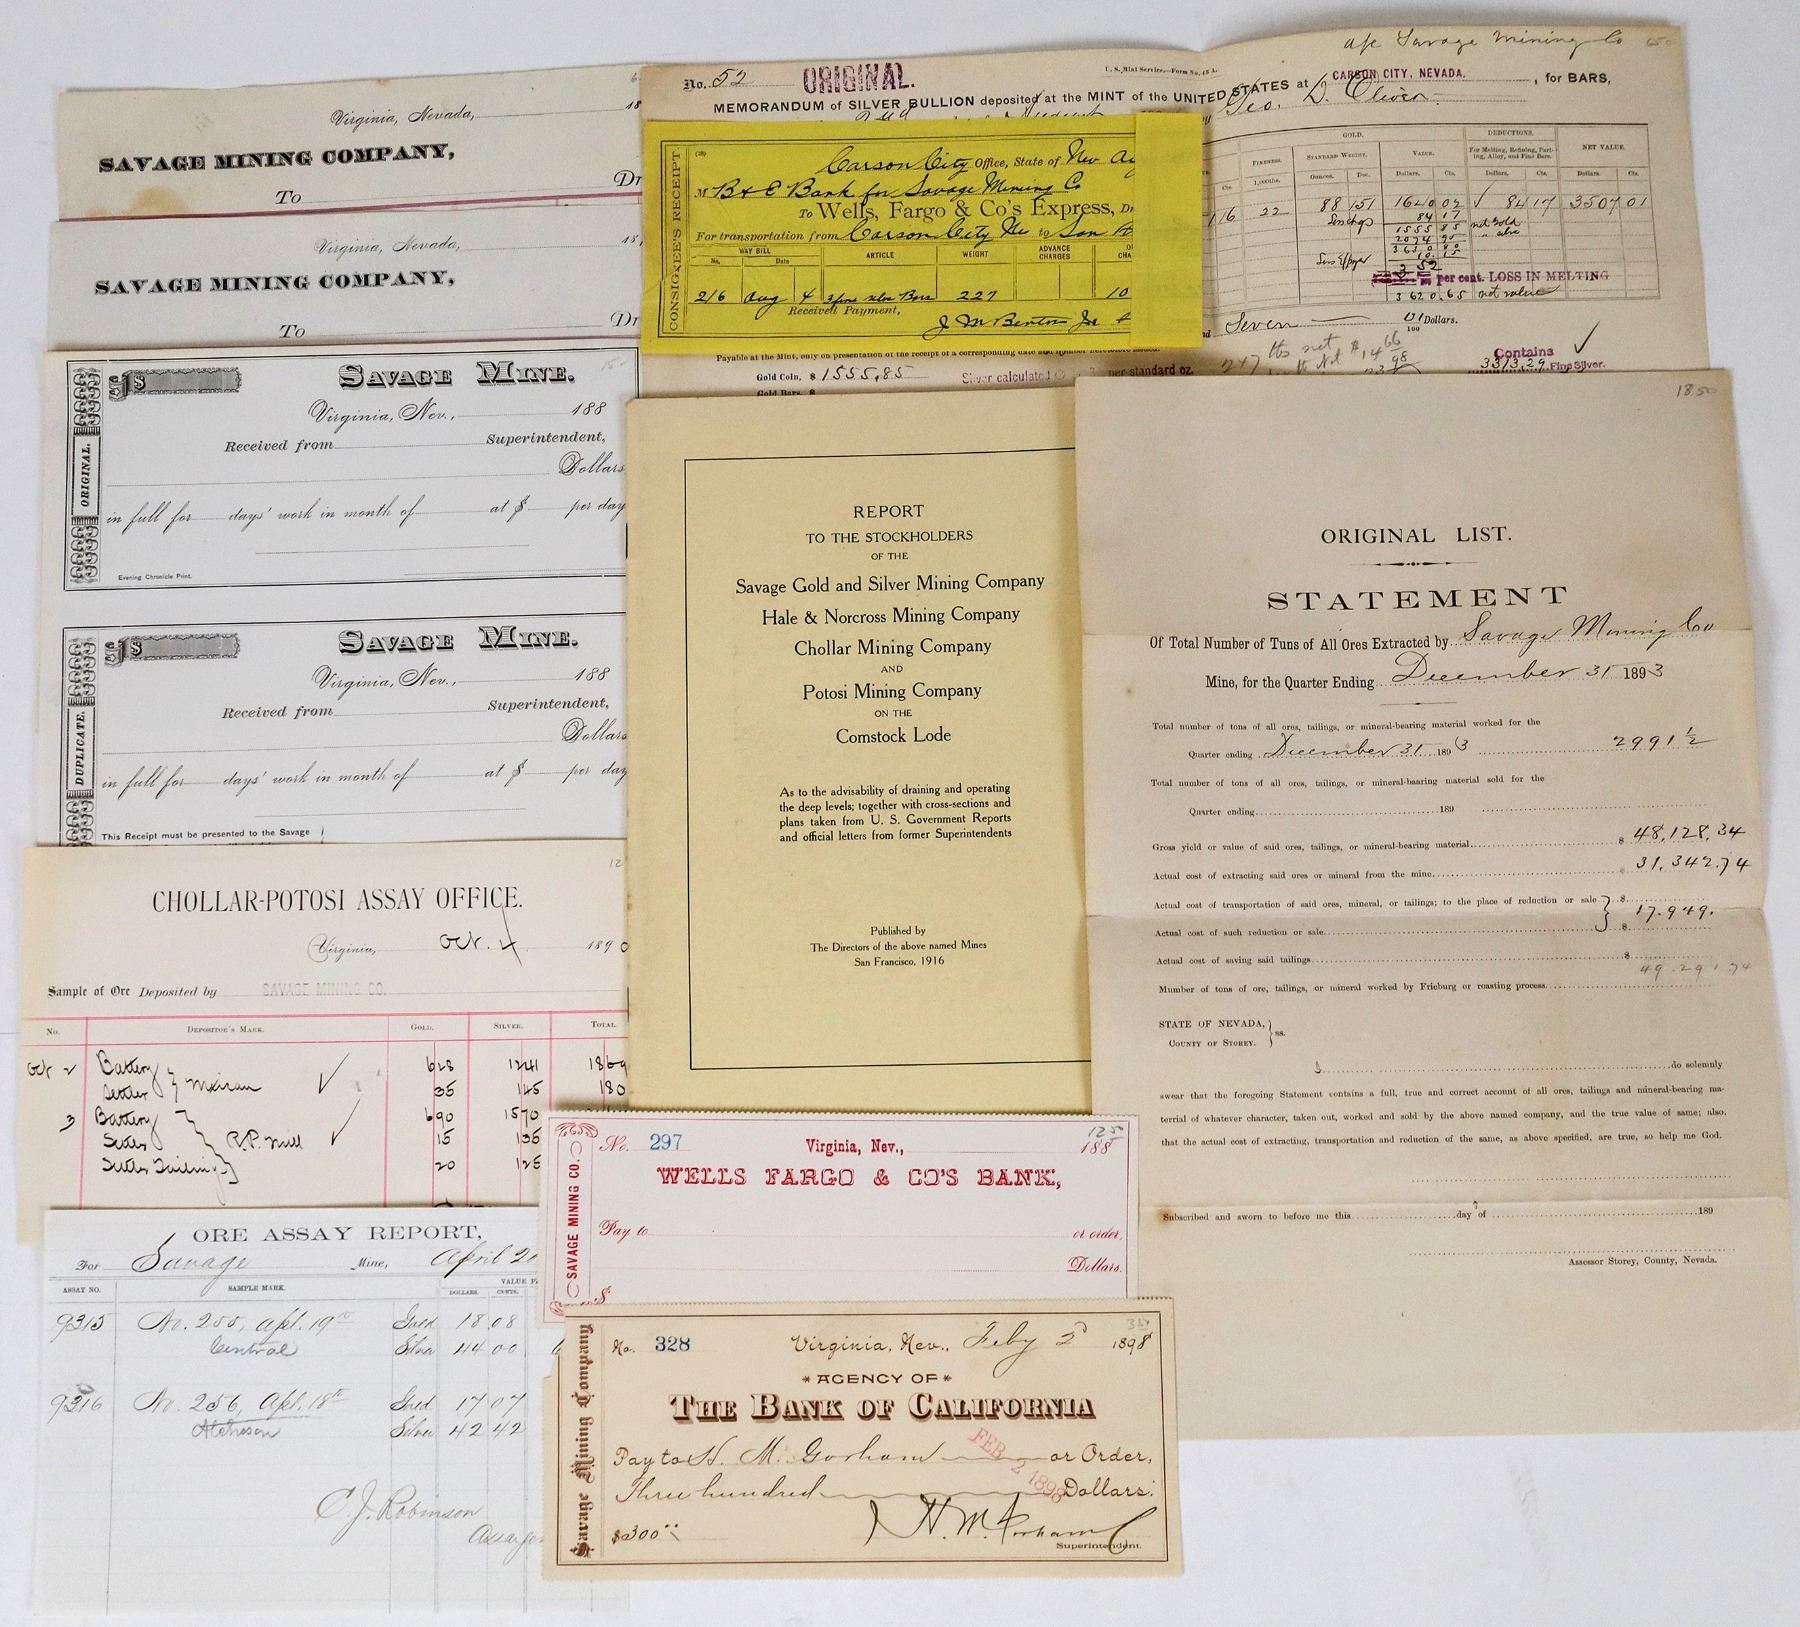 Virginia, Nevada, 18
SAVAGE MINING COMPANY,
To Dr
Virginia, Nevada, 18
SAVAGE MINING COMPANY,
To Dr
ORIGINAL.
$ SAVAGE MINE.
Virginia, Nev., 188
Received from Superintendent,
Dollars
in full for days' work in month of at $ per day
Evening Chronicle Print.
DUPLICATE.
$ SAVAGE MINE.
Virginia, Nev., 188
Received from Superintendent,
Dollars
in full for days' work in month of at $ per day
This Receipt must be presented to the Savage
CHOLLAR-POTOSI ASSAY OFFICE.
Virginia, Oct. 4 1890
Sample of Ore Deposited by SAVAGE MINING CO.
No. DEPOSITOR'S MARK. GOLD. SILVER. TOTAL.
Oct 2 Battery 628 1241 1869
Settler 35 145 180
3 Battery 690 1570
Settler R.P. Mill 15 135
Settler Tailing 20 125
ORE ASSAY REPORT,
For Savage Mine, April 20
ASSAY NO. SAMPLE MARK. VALUE P
DOLLARS. CENTS.
9315 No. 255, Apl. 19th Gold 18 08
Central Silver 44 00
9316 No. 256, Apl. 18th Gold 17 07
Atcheson Silver 42 42
C. J. Robinson
Assayer
a/c Savage Mining Co
No. 52 ORIGINAL. U. S. Mint Service.—Form No. 45 A.
MEMORANDUM of SILVER BULLION deposited at the MINT of the UNITED STATES at CARSON CITY, NEVADA. , for BARS,
Geo. D. Oliver
GOLD. DEDUCTIONS. NET VALUE.
FINENESS. STANDARD WEIGHT. VALUE. For Melting, Refining, Parting, Alloy, and Fine Bars.
Cts. 1,000ths. Ounces. Dec. Dollars. Cts. Dollars. Cts. Dollars. Cts.
16 22 88 51 1640 02 84 17 3507 01
84 17
1555 85 net Gold
2074 95 " silver
3630 80
10 15
per cent. LOSS IN MELTING
3620.65 net value
Seven 01/100 Dollars.
Payable at the Mint, only on presentation of the receipt of a corresponding date and number heretofore issued.
Gold Coin, $ 1555.85 Silver calculated per standard oz.
Gold Bars, $
Contains
3313.29 Fine Silver.
CONSIGNEE'S RECEIPT.
(28)
Carson City Office, State of Nev Aug
M B & E Bank for Savage Mining Co
To Wells, Fargo & Co's Express, Dr
For transportation from Carson City Nev to San
WAY BILL ARTICLE WEIGHT ADVANCE CHARGES
No. Date
216 Aug 4 3 fine silver Bars 227 10
Received Payment,
J M Benton Jr
REPORT
TO THE STOCKHOLDERS
OF THE
Savage Gold and Silver Mining Company
Hale & Norcross Mining Company
Chollar Mining Company
AND
Potosi Mining Company
ON THE
Comstock Lode
As to the advisability of draining and operating
the deep levels; together with cross-sections and
plans taken from U. S. Government Reports
and official letters from former Superintendents
Published by
The Directors of the above named Mines
San Francisco, 1916
18.50
ORIGINAL LIST.
STATEMENT
Of Total Number of Tuns of All Ores Extracted by Savage Mining Co
Mine, for the Quarter Ending December 31 1893
Total number of tons of all ores, tailings, or mineral-bearing material worked for the
Quarter ending December 31 1893 2991 1/2
Total number of tons of all ores, tailings, or mineral-bearing material sold for the
Quarter ending 189
Gross yield or value of said ores, tailings, or mineral-bearing material $ 48,128.34
Actual cost of extracting said ores or mineral from the mine 31,342.74
Actual cost of transportation of said ores, mineral, or tailings; to the place of reduction or sale $
17.949.
Actual cost of such reduction or sale $
Actual cost of saving said tailings $
49.291.74
Mumber of tons of ore, tailings, or mineral worked by Frieburg or roasting process
STATE OF NEVADA,
COUNTY OF STOREY. ss.
I do solemnly
swear that the foregoing Statement contains a full, true and correct account of all ores, tailings and mineral-bearing ma-
terial of whatever character, taken out, worked and sold by the above named company, and the true value of same; also,
that the actual cost of extracting, transportation and reduction of the same, as above specified, are true, so help me God.
Subscribed and sworn to before me this day of 189
Assessor Storey, County, Nevada.
SAVAGE MINING CO.
No. 297 Virginia, Nev., 188
WELLS FARGO & CO'S BANK,
Pay to or order,
Dollars.
$
Savage Mining Company
No. 328 Virginia, Nev., Feby 2d 1898
AGENCY OF
THE BANK OF CALIFORNIA
Pay to H. M. Gorham or Order,
FEB 2 1898
Three hundred Dollars.
$300.00 H. M. Gorham
Superintendent.